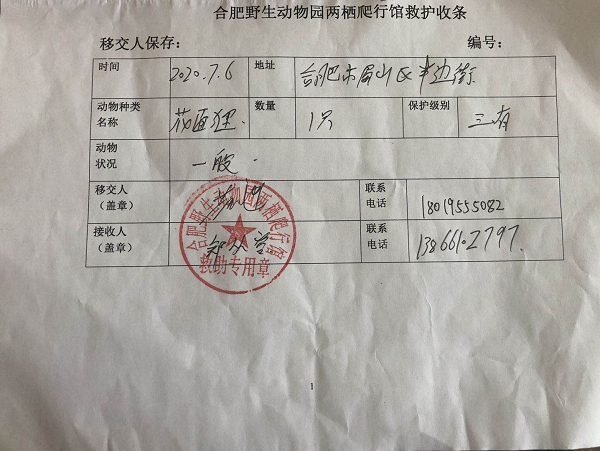 合肥野生动物园两栖爬行馆救护收条
移交人保存： 编号：
时间 2020.7.6 地址 合肥市眉山区半边街
动物种类名称 花面狸 数量 1只 保护级别 三有
动物状况 一般.
移交人（盖章） 联系电话 18019555082
接收人（盖章） 联系电话 138661.2797.
合肥野生动物园两栖爬行馆
救助专用章
1